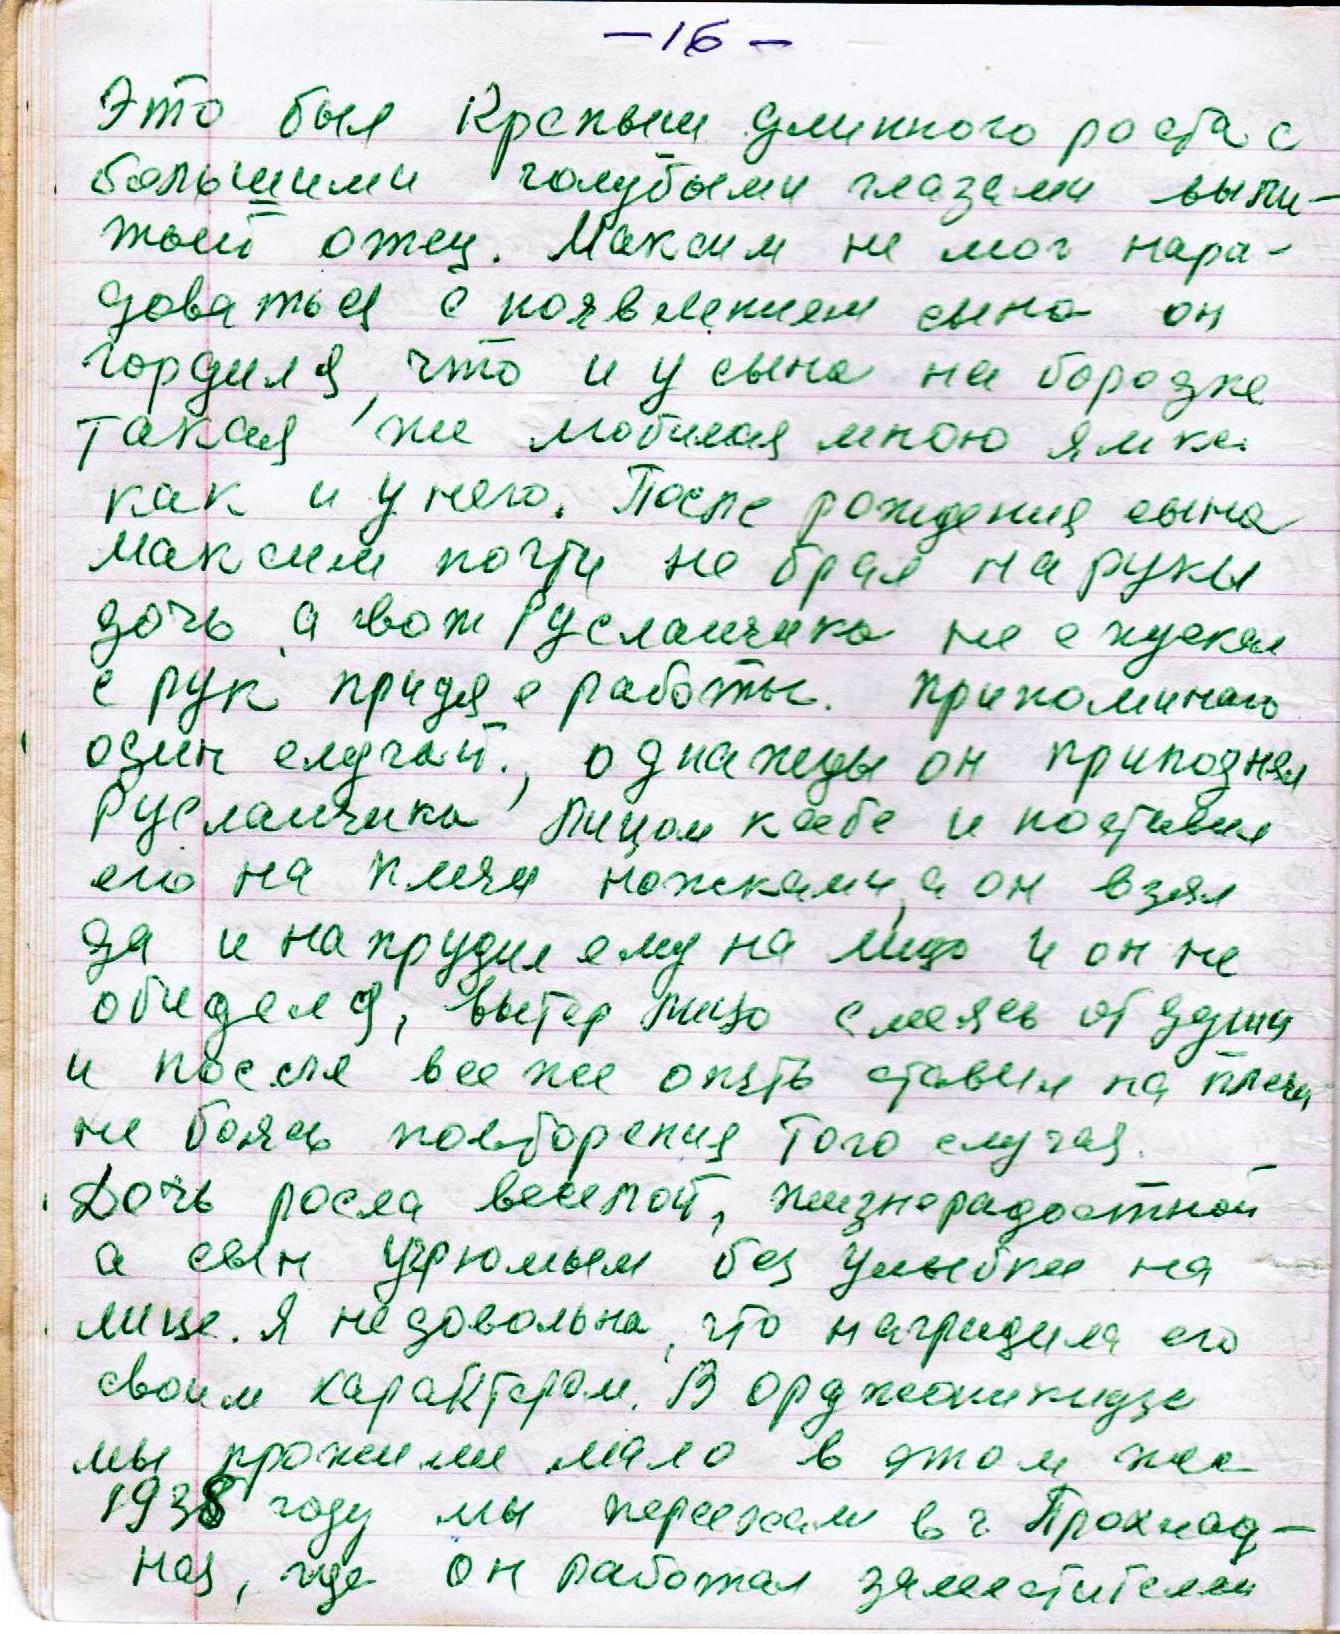 -16-
Это был Крепыш длинного роста с
большими голубыми глазами выли-
тый отец. Максим не мог нара-
доваться с появлением сына он
гордился, что и у сына на бородке
такая же любимая мною ямка
как и у него. После рождения сына
Максим почти не брал на руки
дочь, а вот Русланчика не спускал
с рук придя с работы. Припоминаю
один случай., однажды он приподнял
Русланчика лицом к себе и поставил
его на плечи ножками, а он взял
да и напрудил ему на лицо и он не
обиделся, вытер лицо смеясь от души
и после все же опять ставил на плечи
не боясь повторения того случая.
Дочь росла веселой, жизнерадостной
а сын угрюмым без улыбки на
лице. Я недовольна, что наградила его
своим характером. В орджоникидзе
мы прожили мало в этом же
1938 году мы переехали в г. Прохлад-
ная, где он работал заместителем